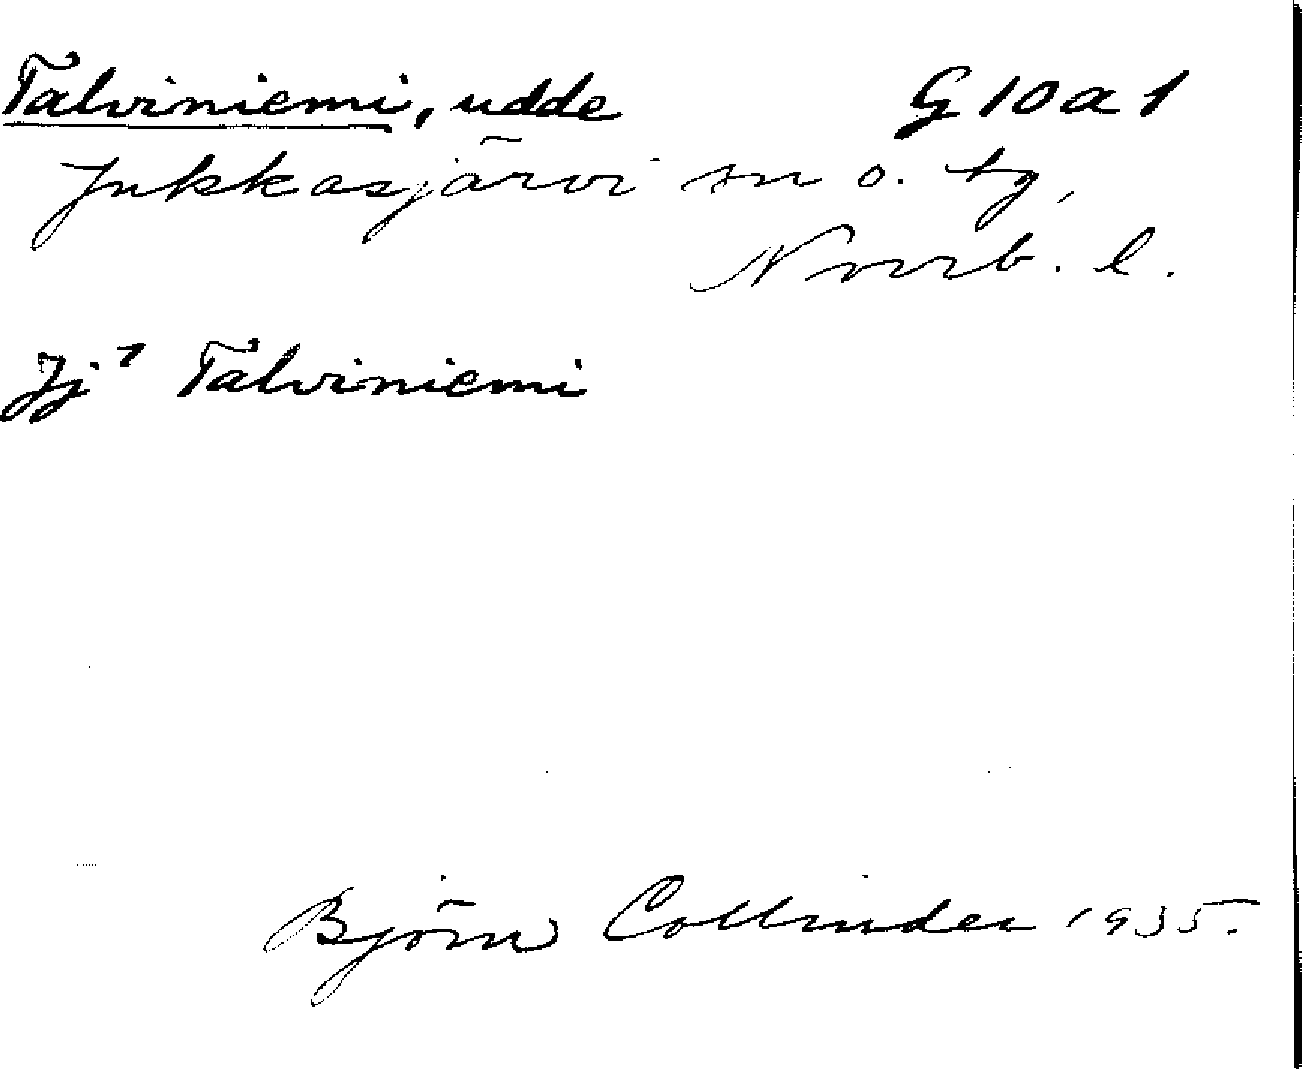 Talviniemi, udde G 10 a 1
Jukkasjärvi sn o. tg,
Norrb. l.
Jj¹ Talviniemi
Björn Collinder 1935.